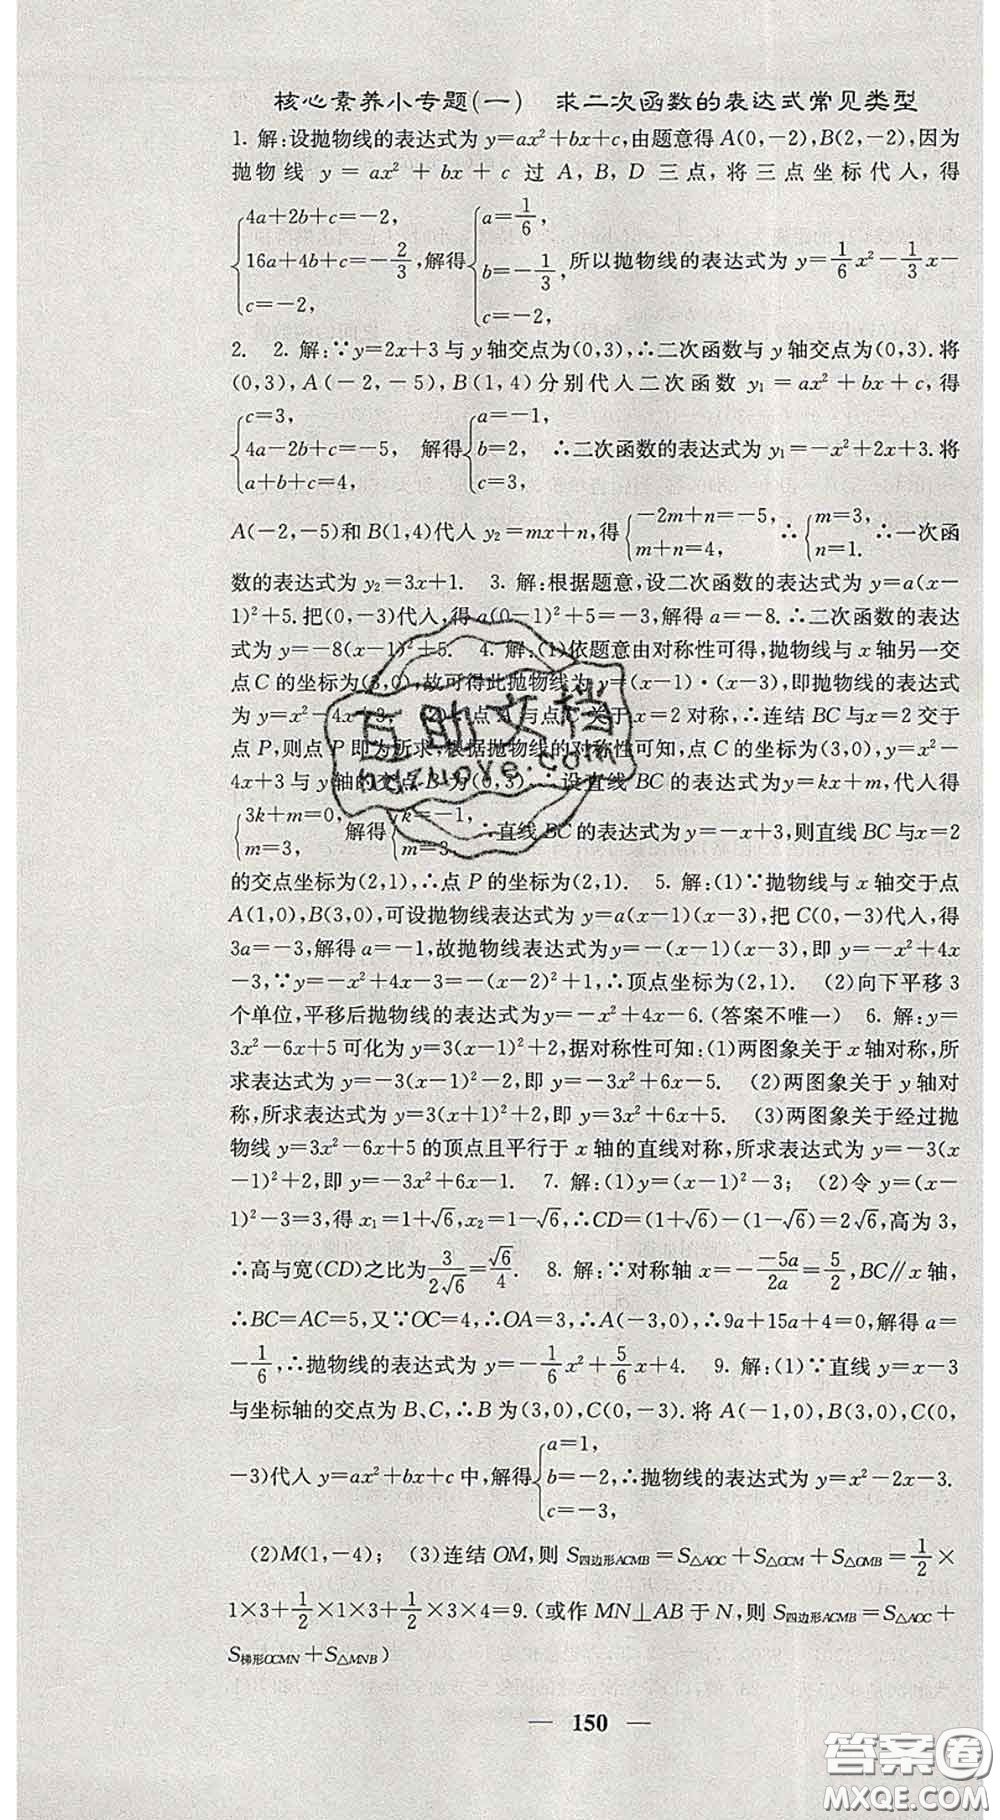 核心素养小专题(一)　求二次函数的表达式常见类型
1. 解:设抛物线的表达式为 y=ax²+bx+c,由题意得 A(0,-2),B(2,-2),因为
抛物线 y = ax² + bx + c 过 A, B, D 三点,将三点坐标代入,得
{4a+2b+c=-2, 16a+4b+c=-2/3, c=-2, 解得 {a=1/6, b=-1/3, c=-2, 所以抛物线的表达式为 y=1/6x²-1/3x-
2.　2. 解:∵y=2x+3 与 y 轴交点为(0,3),∴二次函数与 y 轴交点为(0,3).将
(0,3),A(-2,-5),B(1,4)分别代入二次函数 y₁=ax²+bx+c,得
{c=3, 4a-2b+c=-5, a+b+c=4, 解得 {a=-1, b=2, c=3, ∴二次函数的表达式为 y₁=-x²+2x+3.将
A(-2,-5)和 B(1,4)代入 y₂=mx+n,得 {-2m+n=-5, m+n=4, ∴ {m=3, n=1. ∴一次函
数的表达式为 y₂=3x+1.　3. 解:根据题意,设二次函数的表达式为 y=a(x-
1)²+5.把(0,-3)代入,得 a(0-1)²+5=-3,解得 a=-8.∴二次函数的表达
式为 y=-8(x-1)²+5.　4. 解:(1)依题意由对称性可得,抛物线与 x 轴另一交
点 C 的坐标为(3,0),故可得此抛物线为 y=(x-1)·(x-3),即抛物线的表达式
为 y=x²-4x+3. 点 A 与点 C 关于 x=2 对称,∴连结 BC 与 x=2 交于
点 P,则点 P 即为所求,根据抛物线的对称性可知,点 C 的坐标为(3,0),y=x²-
4x+3 与 y 轴的交点 B 为(0,3).∴设直线 BC 的表达式为 y=kx+m,代入得
{3k+m=0, m=3, 解得 {k=-1, m=3. ∴直线 BC 的表达式为 y=-x+3,则直线 BC 与 x=2
的交点坐标为(2,1),∴点 P 的坐标为(2,1).　5. 解:(1)∵抛物线与 x 轴交于点
A(1,0),B(3,0),可设抛物线表达式为 y=a(x-1)(x-3),把 C(0,-3)代入,得
3a=-3,解得 a=-1,故抛物线表达式为 y=-(x-1)(x-3),即 y=-x²+4x
-3,∵y=-x²+4x-3=-(x-2)²+1,∴顶点坐标为(2,1).　(2)向下平移 3
个单位,平移后抛物线的表达式为 y=-x²+4x-6.(答案不唯一)　6. 解:y=
3x²-6x+5 可化为 y=3(x-1)²+2,据对称性可知:(1)两图象关于 x 轴对称,所
求表达式为 y=-3(x-1)²-2,即 y=-3x²+6x-5.　(2)两图象关于 y 轴对
称,所求表达式为 y=3(x+1)²+2,即 y=3x²+6x+5.　(3)两图象关于经过抛
物线 y=3x²-6x+5 的顶点且平行于 x 轴的直线对称,所求表达式为 y=-3(x
-1)²+2,即 y=-3x²+6x-1.　7. 解:(1)y=(x-1)²-3;　(2)令 y=(x-
1)²-3=3,得 x₁=1+√6,x₂=1-√6,∴CD=(1+√6)-(1-√6)=2√6,高为 3,
∴高与宽(CD)之比为 3/2√6=√6/4.　8. 解:∵对称轴 x=-(-5a)/2a=5/2,BC∥x 轴,
∴BC=AC=5,又∵OC=4,∴OA=3,∴A(-3,0),∴9a+15a+4=0,解得 a=
-1/6,∴抛物线的表达式为 y=-1/6x²+5/6x+4.　9. 解:(1)∵直线 y=x-3
与坐标轴的交点为 B、C,∴B 为(3,0),C(0,-3).将 A(-1,0),B(3,0),C(0,
-3)代入 y=ax²+bx+c 中,解得 {a=1, b=-2, c=-3, ∴抛物线的表达式为 y=x²-2x-3.
(2)M(1,-4);　(3)连结 OM,则 S四边形ACMB=S△AOC+S△OCM+S△OMB=1/2×
1×3+1/2×1×3+1/2×3×4=9.(或作 MN⊥AB 于 N,则 S四边形ACMB=S△AOC+
S梯形OCMN+S△MNB)
— 150 —
互助文档
答案圈
MXQE.COM